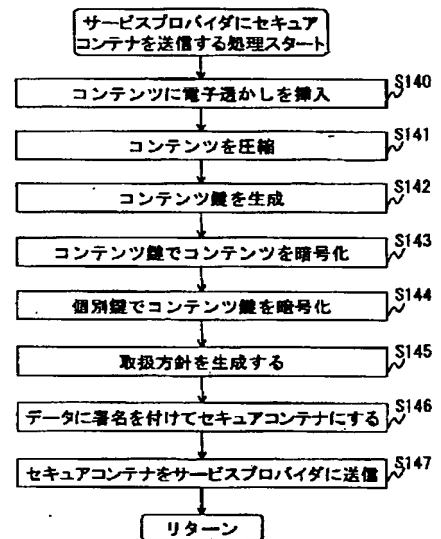 サービスプロバイダにセキュア
コンテナを送信する処理スタート
S140
コンテンツに電子透かしを挿入
S141
コンテンツを圧縮
S142
コンテンツ鍵を生成
S143
コンテンツ鍵でコンテンツを暗号化
S144
個別鍵でコンテンツ鍵を暗号化
S145
取扱方針を生成する
S146
データに署名を付けてセキュアコンテナにする
S147
セキュアコンテナをサービスプロバイダに送信
リターン